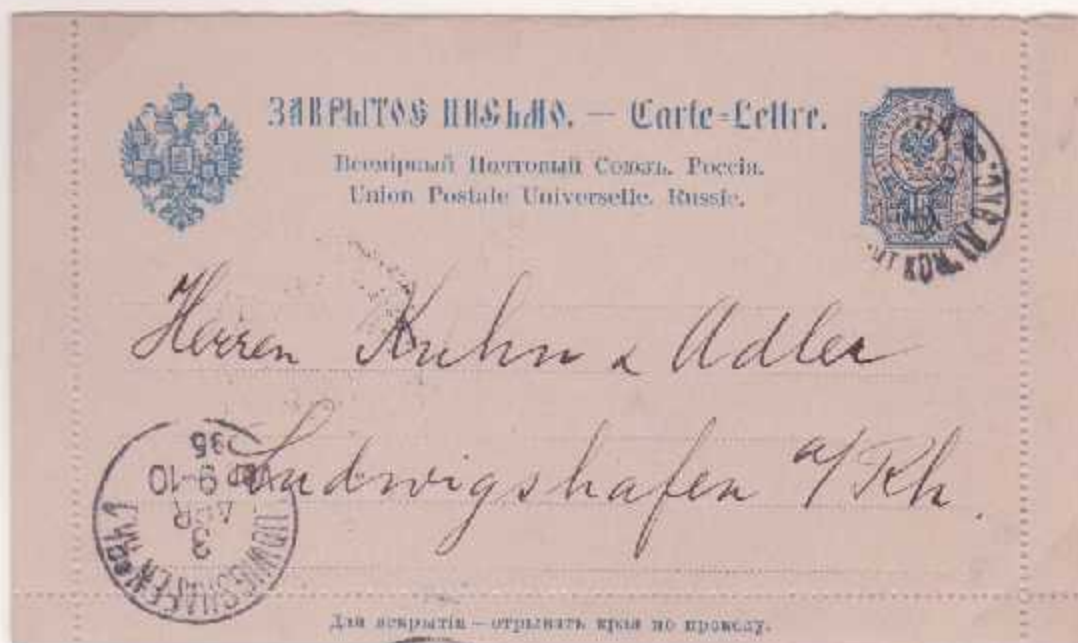 ЗАКРЫТОЕ ПИСЬМО. — Carte-Lettre.
Всемірный Почтовый Союзъ. Россія.
Union Postale Universelle. Russie.
Herren Kuhn & Adler
Ludwigshafen a/Rh.
LUDWIGSHAFEN
3
APR
9-10
95
Для вскрытія — отрывать края по проколу.